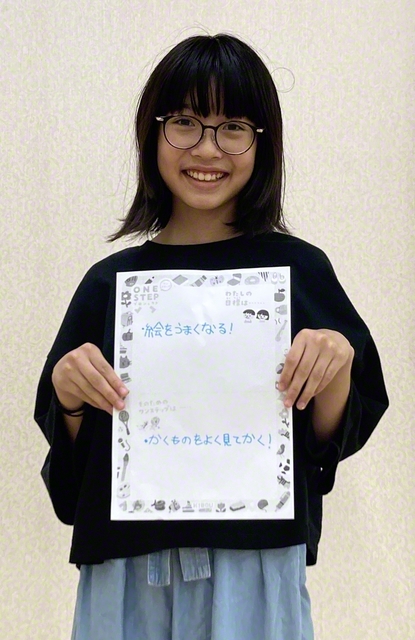 ONE
STEP
わたしの
目標は……
・絵をうまくなる！
そのための
ワンステップは
・かくものをよく見てかく！